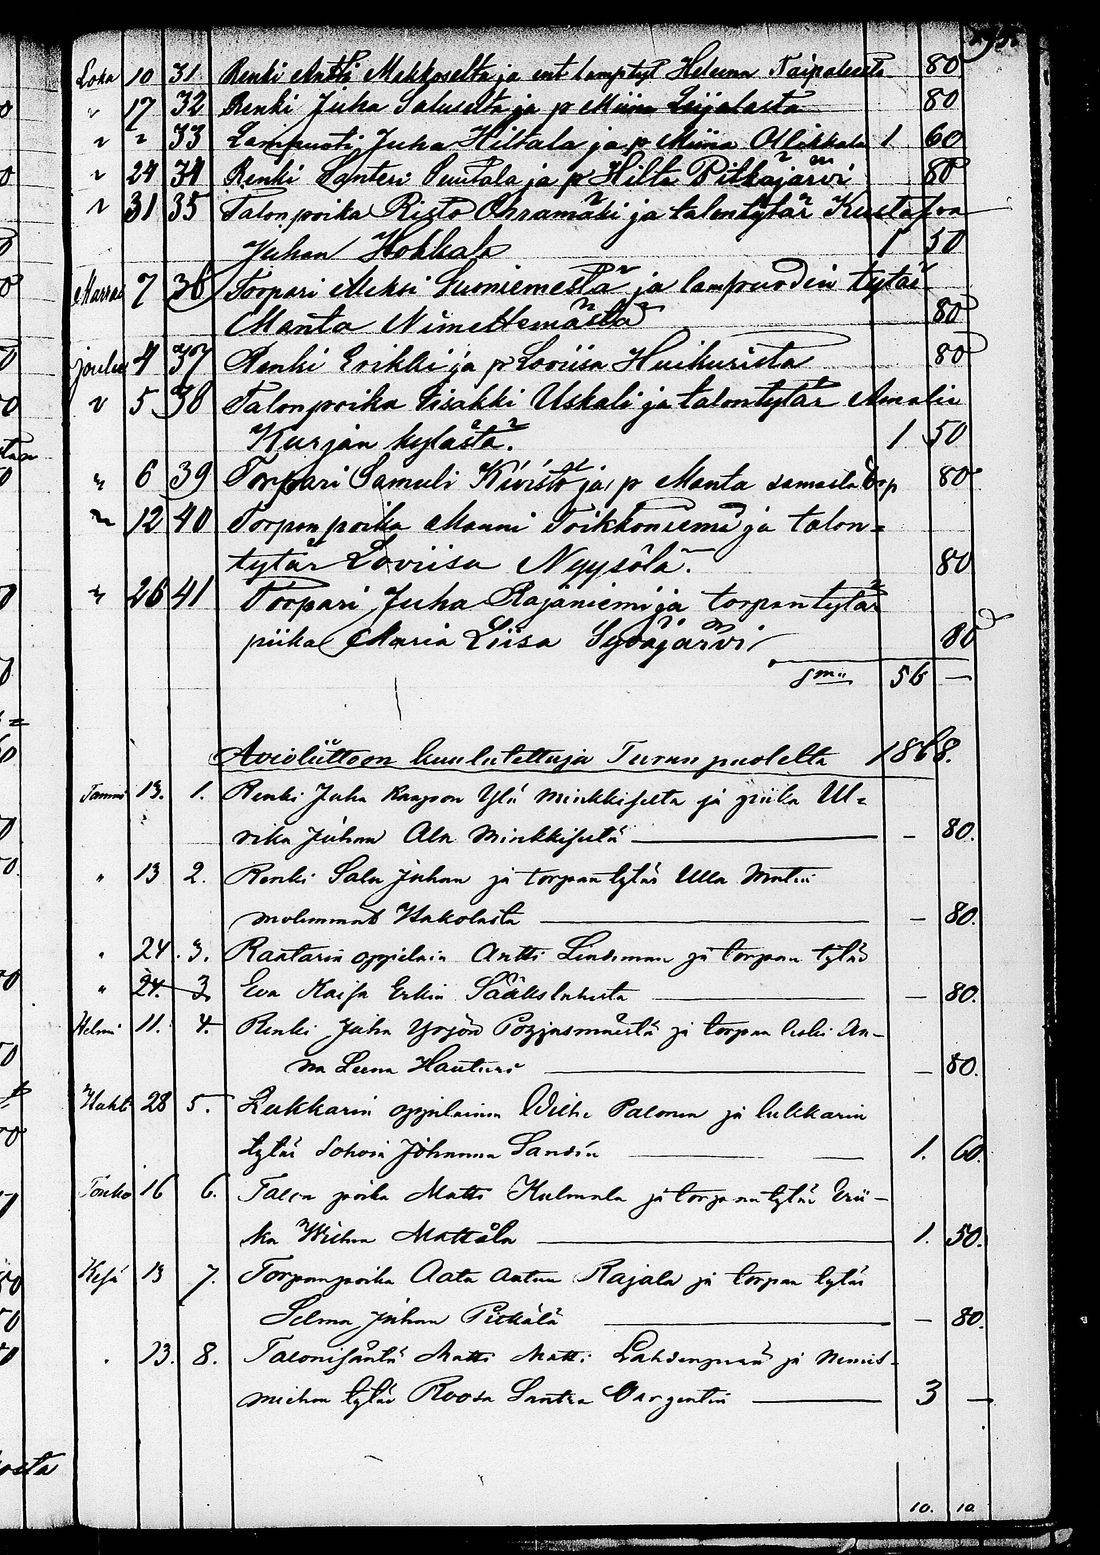 Loka 10 31. Renki Antti Makkoselta ja ent lamptyt Heleena Taipaleesta 80
" 17 32 Renki Juha Saluselta ja p Miina 80
" " 33 Lampuoti Juha Hiltala ja p Miina Ollikkala 1 60
" 24 34 Renki Santeri Ruutala ja p Hilta Pitkäjärvi 80
" 31 35 Talonpoika Risto Ohramäki ja talontytär Kustafva
Juhan Hokkala 1 50
Marras 7 36 Torpari Aleksi Lumiemestä ja lampuodin tytär
Manta Nimettemästä 80
joulu 4 37 Renki Erikki ja p Loviisa Huikurista 80
" 5 38 Talonpoika Iisakki Uskali ja talontytär Amalia
Kurjan kylästä. 1 50
" 6 39 Torpari Samuli Kivistö ja p Manta samasta torp 80
" 12 40 Torpanpoika Manni Toikkoniemi ja talon=
tytär Loviisa Nyysölä. 80
" 26 41 Torpari Juha Rajaniemi ja torpantytär
piika Maria Liisa Syväjärvi 80
Sm:a 56 —
Avioliittoon kuulutettuja Turun puolelta 1868.
Tammi 13. 1. Renki Juha Kaapon Ylä Minkkiseltä ja piika Ul=
rika Juhan Ala Minkkiseltä — - 80.
" 13 2. Renki Salu Juhan ja torpan tytär Ulla Matin
molemmat Hakolasta — - 80.
" 24. 3. Räätärin oppilain Antti Lindeman ja torpan tytär
" 24. 3 Eva Kaisa Erkin Sääkslahesta — - 80.
Helmi 11. 4. Renki Juha Yrjön Pozjasmäestä ja torpan leski An-
na Leena Hautiers — - 80.
Huhti 28 5. Lukkarin oppilainen Wilhe Palonen ja lukkarin
tytär Sohvia Johanna Sandin — 1. 60.
Touko 16 6. Talon poika Matti Kulmala ja torpantytär Erii-
ka Wilhm Mattåla — 1. 50.
Kesä 13 7. Torpanpoika Aata Antun Rajala ja torpan tytär
Selma Juhan Pitkälä — - 80.
" 13. 8. Talonisäntä Matti Matti Lahdenperä ja Nimis-
miehen tytär Roosa Santra Argentin — 3 —
10. 10.